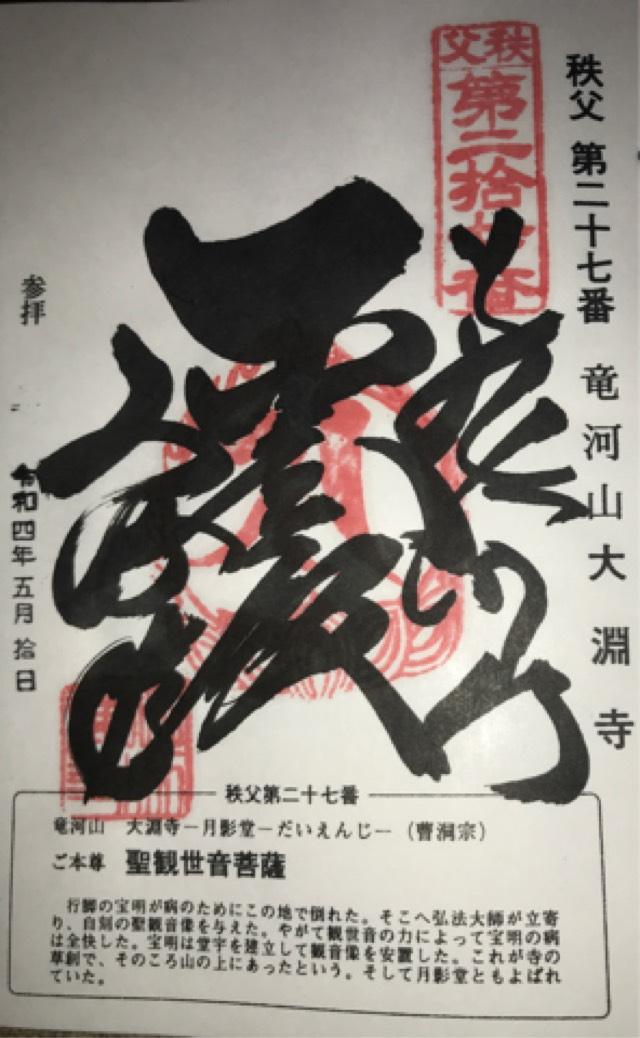 秩父 第二十七番 竜河山大淵寺
秩父
第二拾七番
参拝
令和四年五月拾日
秩父第二十七番
竜河山 大淵寺－月影堂－だいえんじ－（曹洞宗）
ご本尊 聖観世音菩薩
行脚の宝明が病のためにこの地で倒れた。そこへ弘法大師が立寄
り、自刻の聖観音像を与えた。やがて観世音の力によって宝明の病
は全快した。宝明は堂宇を建立して観音像を安置した。これが寺の
草創で、そのころ山の上にあったという。そして月影堂ともよばれ
ていた。